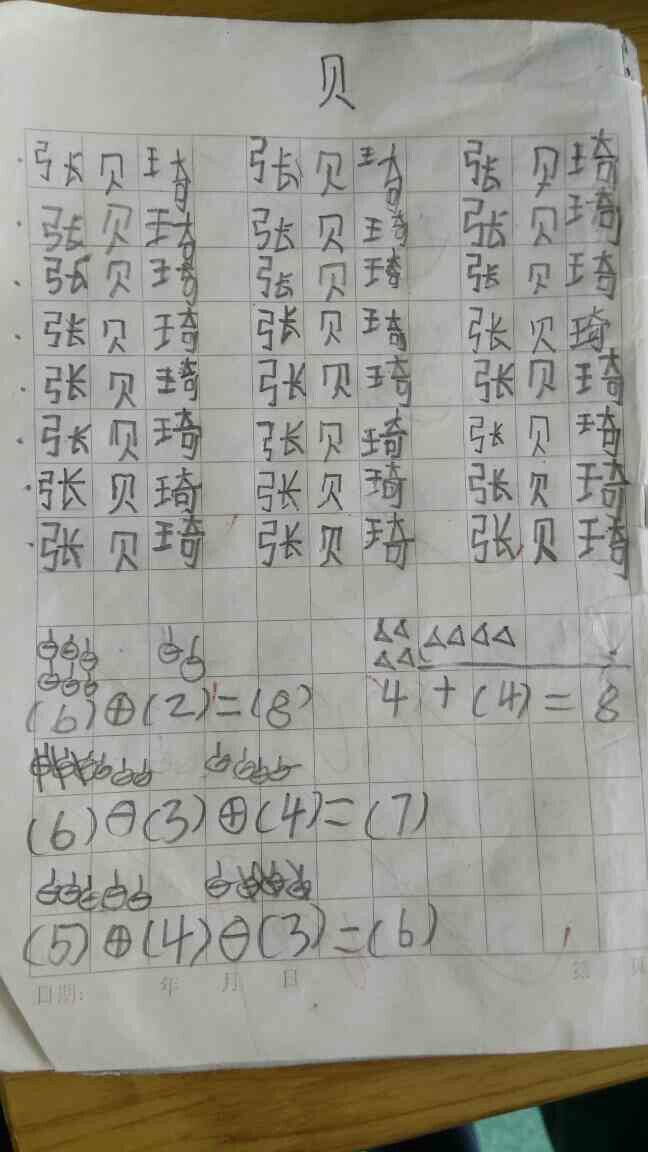 贝
张贝琦 张贝琦 张贝琦
张贝琦 张贝琦 张贝琦
张贝琦 张贝琦 张贝琦
张贝琦 张贝琦 张贝琦
张贝琦 张贝琦 张贝琦
张贝琦 张贝琦 张贝琦
张贝琦 张贝琦 张贝琦
张贝琦 张贝琦 张贝琦
(6)⊕(2)=(8) 4+(4)=8
(6)⊖(3)⊕(4)=(7)
(5)⊕(4)⊖(3)=(6)
日期: 年 月 日 第 页